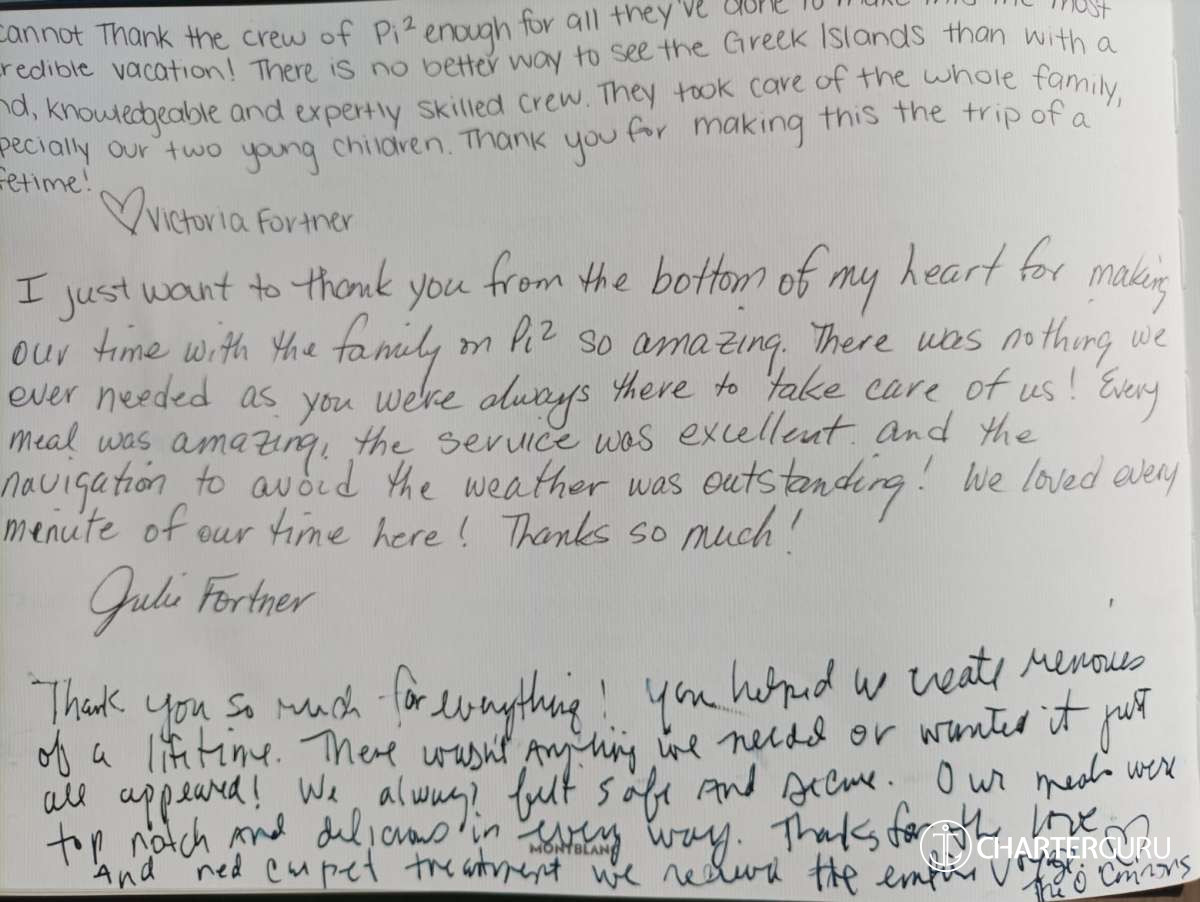 cannot Thank the crew of Pi² enough for all they've done to make this the most
redible vacation! There is no better way to see the Greek Islands than with a
nd, knowledgeable and expertly skilled crew. They took care of the whole family,
pecially our two young children. Thank you for making this the trip of a
fetime!
♡ Victoria Fortner
I just want to thank you from the bottom of my heart for making
our time with the family on Pi² so amazing. There was nothing we
ever needed as you were always there to take care of us! Every
meal was amazing, the service was excellent and the
navigation to avoid the weather was outstanding! We loved every
minute of our time here! Thanks so much!
Julie Fortner
Thank you so much for everything! You helped us create memories
of a lifetime. There wasn't anything we needed or wanted it just
all appeared! We always felt safe and secure. Our meals were
top notch and delicious in every way. Thanks for the love
MONTBLANC
CHARTERGURU
And red carpet treatment we received the entire
The O'Connors